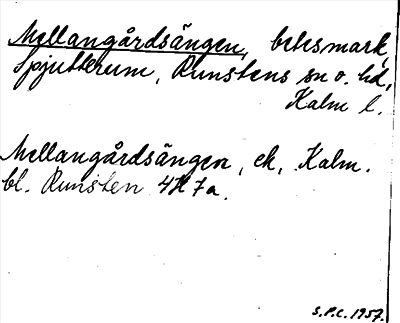 Mellangårdsängen, betesmark,
Spjutterum, Runstens sn o. hd,
Kalm l.
Mellangårdsängen, ek, Kalm.
bl. Runsten 4H7a.
S.P.C. 1957.